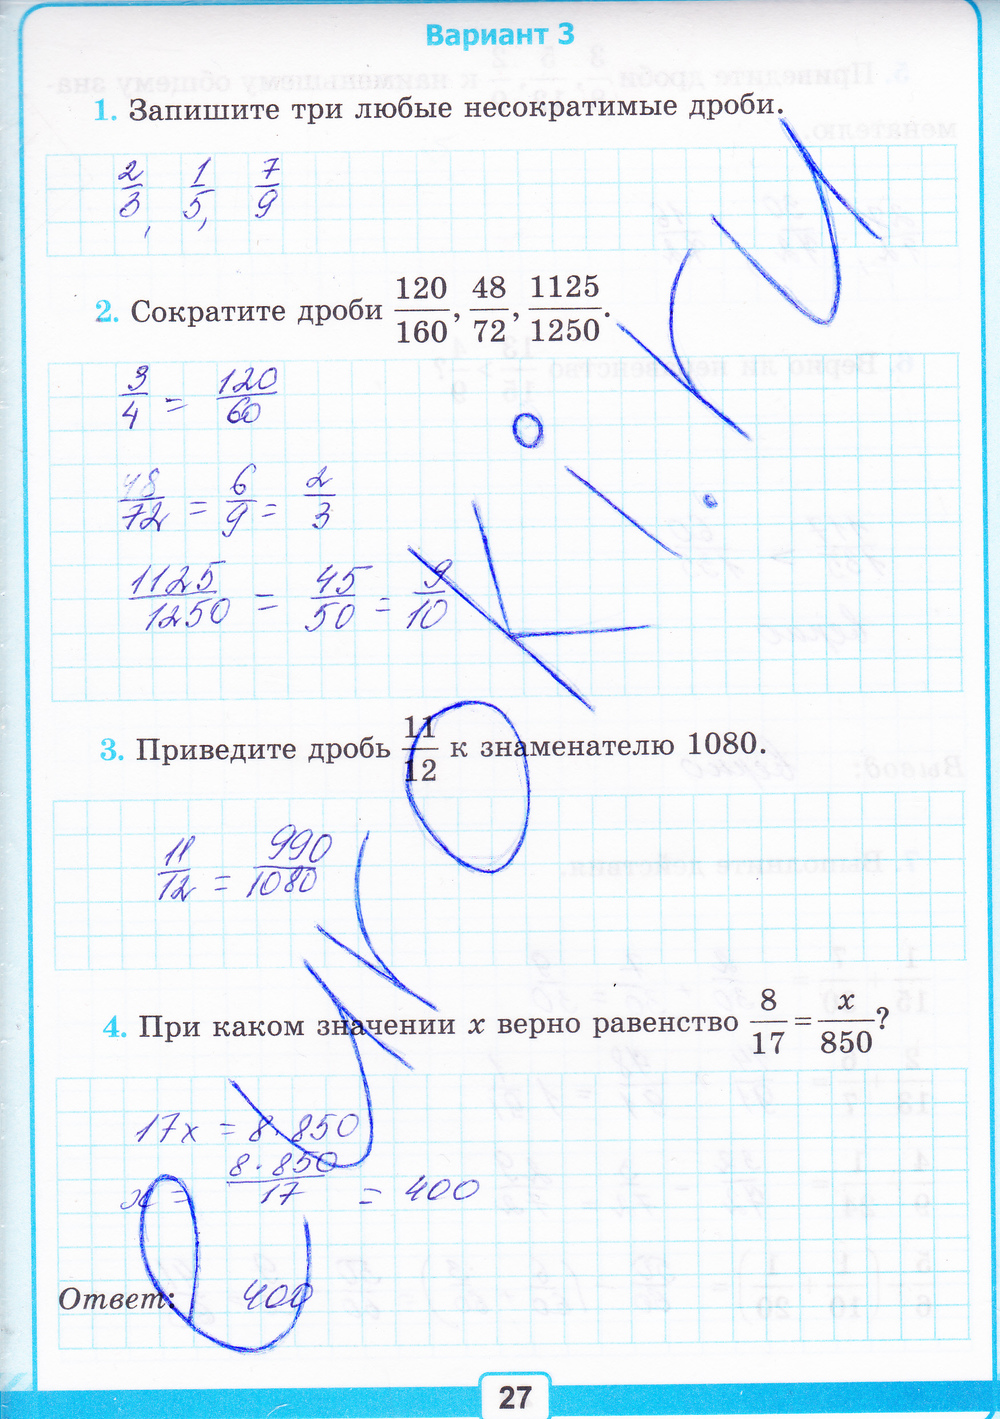 Вариант 3
1. Запишите три любые несократимые дроби.
2/3, 1/5, 7/9
2. Сократите дроби 120/160, 48/72, 1125/1250.
3/4 = 120/60
48/72 = 6/9 = 2/3
1125/1250 = 45/50 = 9/10
3. Приведите дробь 11/12 к знаменателю 1080.
11/12 = 990/1080
4. При каком значении x верно равенство 8/17 = x/850?
17x = 8·850
x = 8·850/17 = 400
Ответ: 400
27